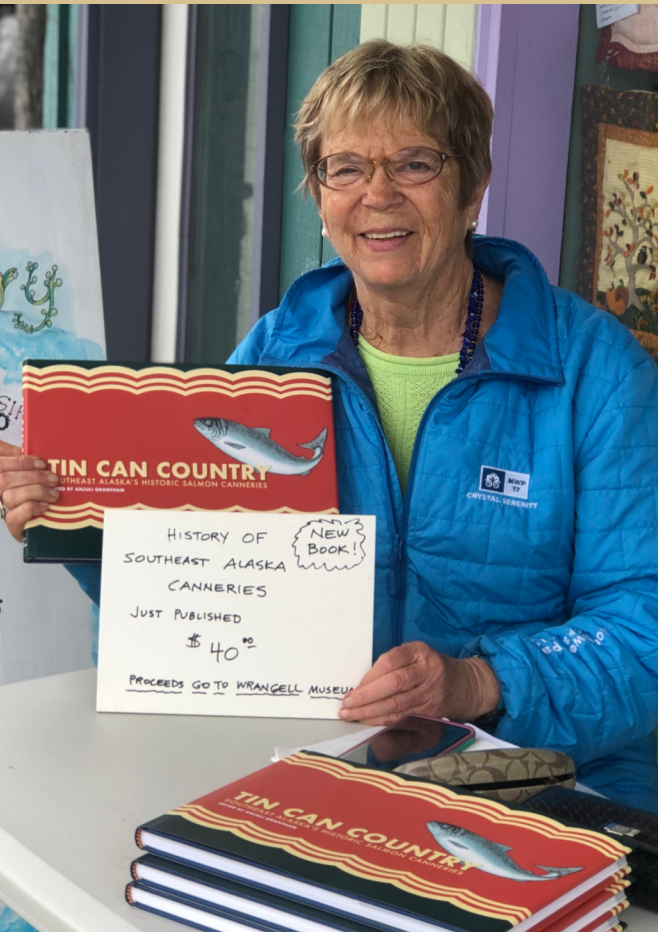 ry
TIN CAN COUNTRY
SOUTHEAST ALASKA'S HISTORIC SALMON CANNERIES
EDITED BY ANJULI GRANTHAM
NEW
BOOK!
HISTORY OF
SOUTHEAST ALASKA
CANNERIES
JUST PUBLISHED
$40.00
PROCEEDS GO TO WRANGELL MUSEUM
NWP
17
CRYSTAL SERENITY
TIN CAN COUNTRY
SOUTHEAST ALASKA'S HISTORIC SALMON CANNERIES
EDITED BY ANJULI GRANTHAM